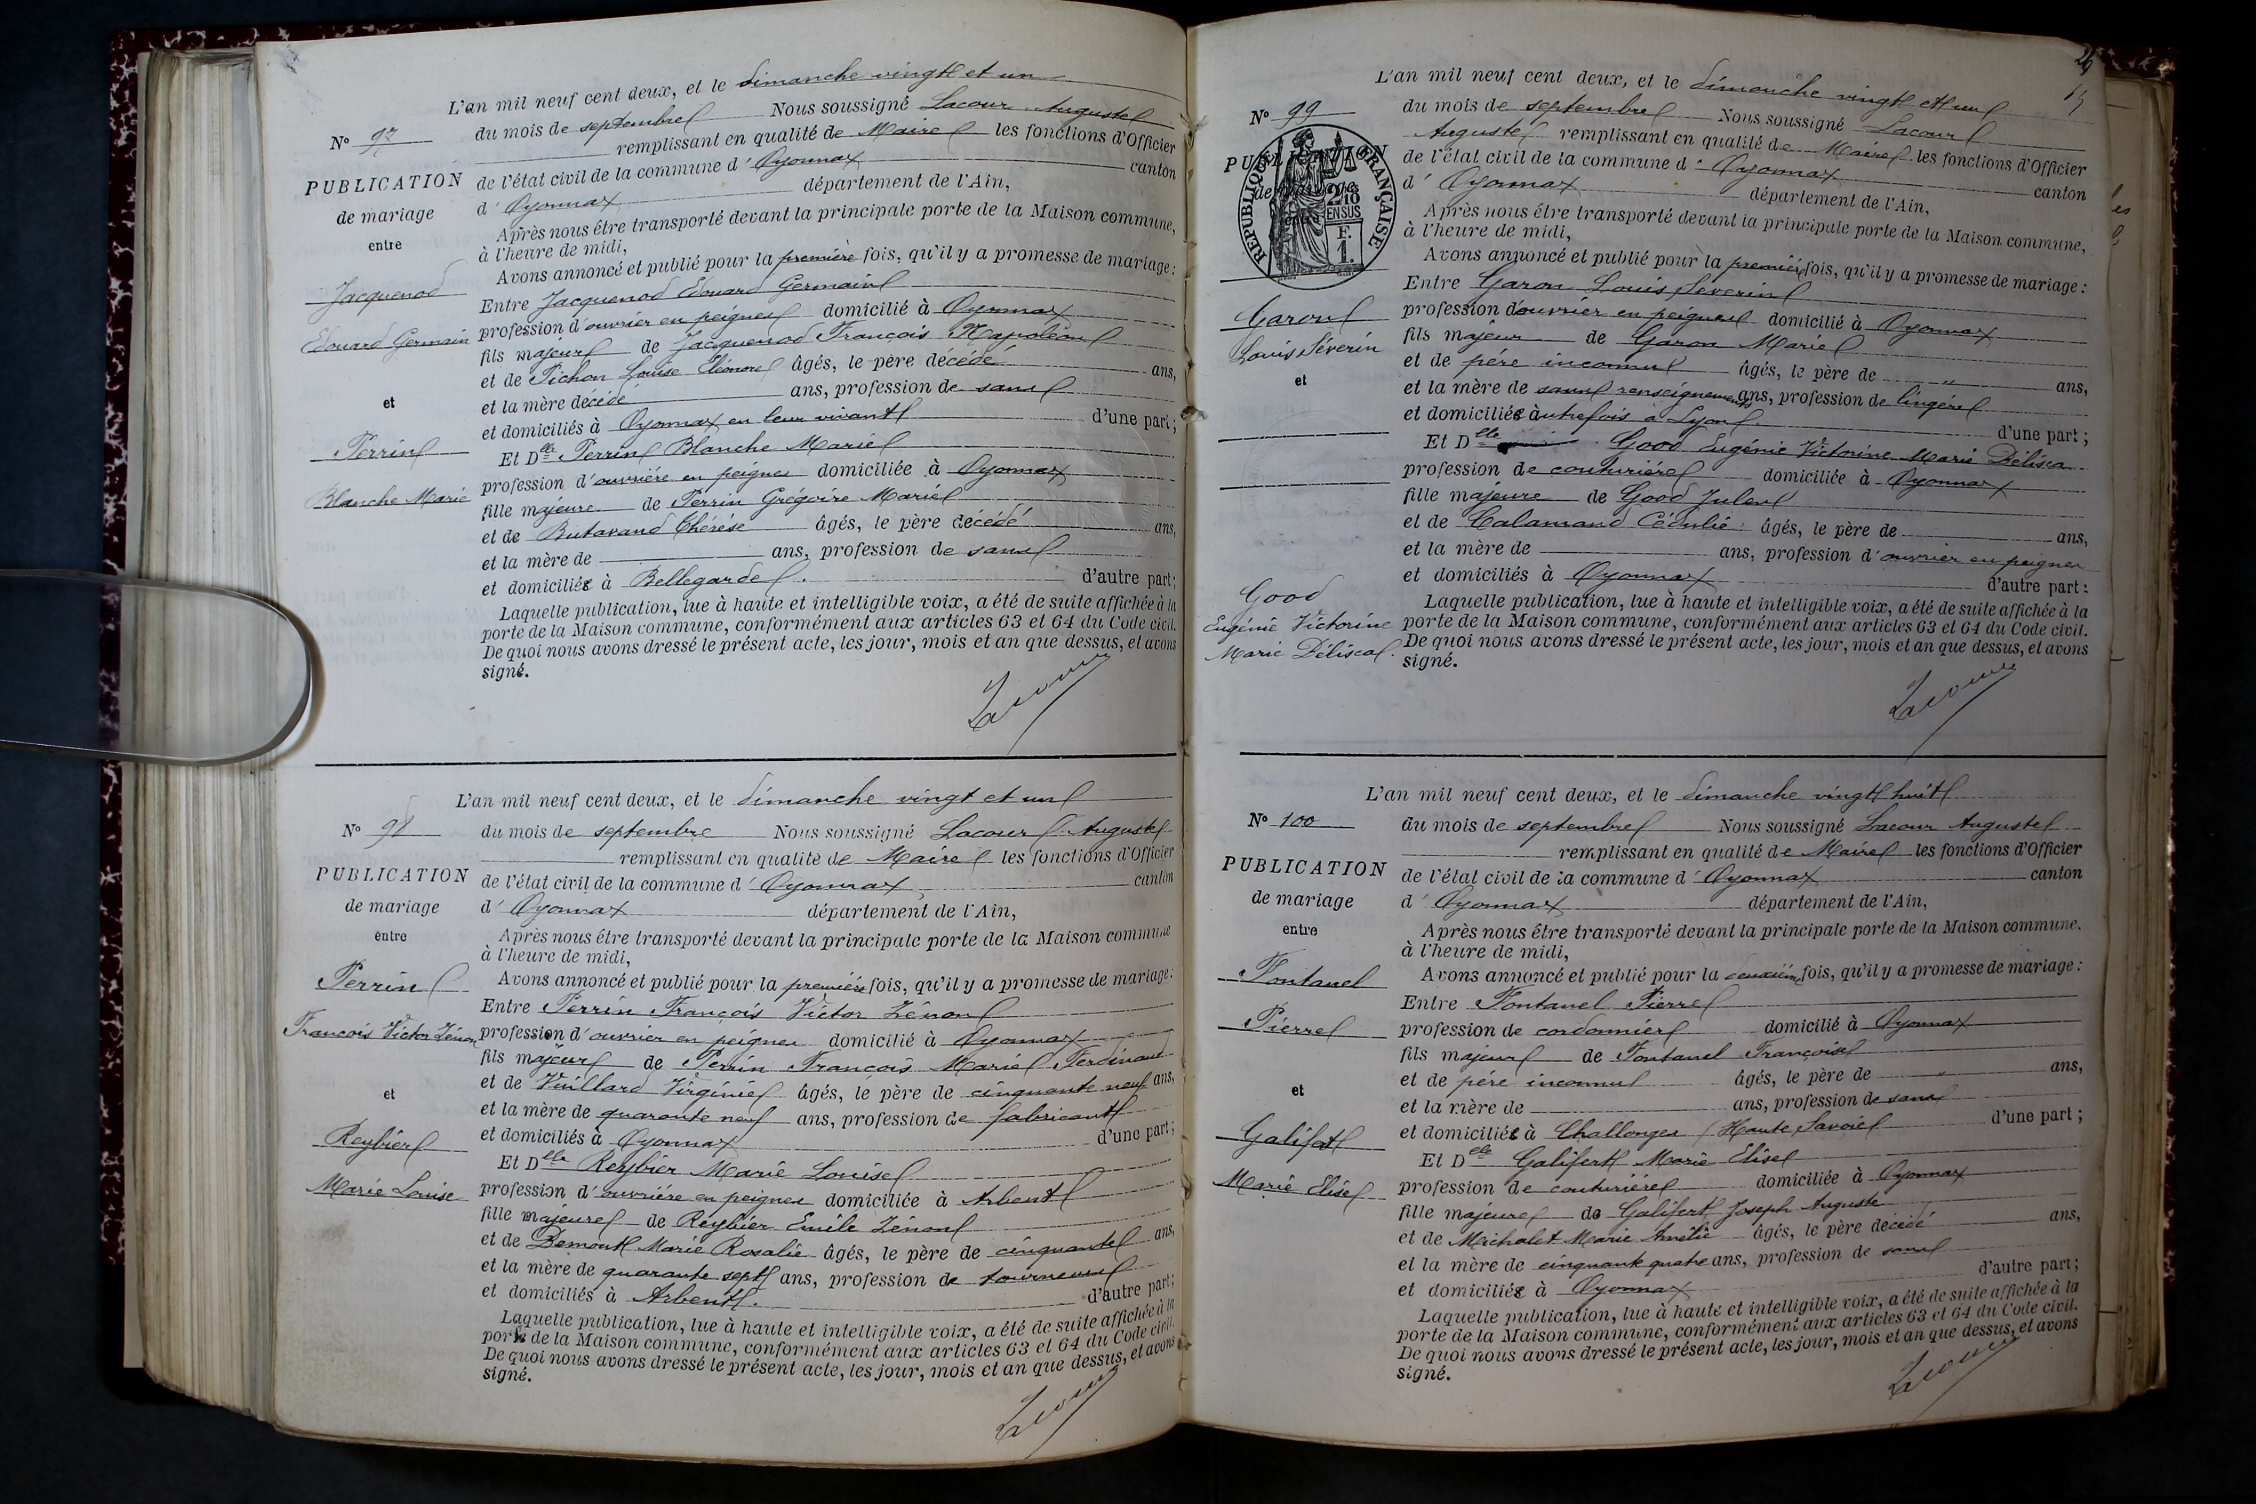 L'an mil neuf cent deux, et le dimanche vingt et un
N° 97
du mois de septembre Nous soussigné Lacour Auguste
remplissant en qualité de Maire les fonctions d'Officier
PUBLICATION
de mariage
entre
de l'état civil de la commune d' Oyonnax canton
d' Oyonnax département de l'Ain,
Après nous être transporté devant la principale porte de la Maison commune,
à l'heure de midi,
Avons annoncé et publié pour la première fois, qu'il y a promesse de mariage :
Jacquenod
Edouard Germain
et
Perrin
Blanche Marie
Entre Jacquenod Edouard Germain
profession d'ouvrier en peignes domicilié à Oyonnax
fils majeur de Jacquenod François Napoléon
et de Pichon Louise Eléonore âgés, le père décédé ans,
et la mère décédé ans, profession de sans
et domiciliés à Oyonnax en leur vivant d'une part ;
Et Dlle Perrin Blanche Marie
profession d'ouvrière en peignes domiciliée à Oyonnax
fille majeure de Perrin Grégoire Marie
et de Butavand Thérèse âgés, le père décédé ans,
et la mère de ans, profession de sans
et domiciliés à Bellegarde. d'autre part ;
Laquelle publication, lue à haute et intelligible voix, a été de suite affichée à la
porte de la Maison commune, conformément aux articles 63 et 64 du Code civil.
De quoi nous avons dressé le présent acte, les jour, mois et an que dessus, et avons
signé.
Lacour
L'an mil neuf cent deux, et le dimanche vingt et un
N° 98
du mois de septembre Nous soussigné Lacour Auguste
remplissant en qualité de Maire les fonctions d'Officier
PUBLICATION
de mariage
entre
de l'état civil de la commune d' Oyonnax canton
d' Oyonnax département de l'Ain,
Après nous être transporté devant la principale porte de la Maison commune
à l'heure de midi,
Avons annoncé et publié pour la première fois, qu'il y a promesse de mariage :
Perrin
François Victor Zénon
et
Reybier
Marie Louise
Entre Perrin François Victor Zénon
profession d'ouvrier en peignes domicilié à Oyonnax
fils majeur de Perrin François Marie Ferdinand
et de Vuillard Virginie âgés, le père de cinquante neuf ans,
et la mère de quarante neuf ans, profession de fabricant
et domiciliés à Oyonnax d'une part ;
Et Dlle Reybier Marie Louise
profession d'ouvrière en peignes domiciliée à Arbent
fille majeure de Reybier Emile Zénon
et de Demont Marie Rosalie âgés, le père de cinquante ans,
et la mère de quarante sept ans, profession de tourneur
et domiciliés à Arbent. d'autre part ;
Laquelle publication, lue à haute et intelligible voix, a été de suite affichée à la
porte de la Maison commune, conformément aux articles 63 et 64 du Code civil.
De quoi nous avons dressé le présent acte, les jour, mois et an que dessus, et avons
signé.
Lacour
L'an mil neuf cent deux, et le dimanche vingt et un
N° 99
du mois de septembre Nous soussigné Lacour
Auguste remplissant en qualité de Maire les fonctions d'Officier
PUBLICATION
de mariage
entre
REPUBLIQUE FRANÇAISE
2/10
EN SUS
F.
1.
de l'état civil de la commune d' Oyonnax canton
d' Oyonnax département de l'Ain,
Après nous être transporté devant la principale porte de la Maison commune,
à l'heure de midi,
Avons annoncé et publié pour la première fois, qu'il y a promesse de mariage :
Garon
Louis Séverin
et
Good
Eugénie Victorine
Marie Délisca.
Entre Garon Louis Severin
profession d'ouvrier en peignes domicilié à Oyonnax
fils majeur de Garon Marie
et de père inconnu âgés, le père de " ans,
et la mère de sans renseignements ans, profession de lingère
et domiciliée autrefois à Lyon. d'une part ;
Et Dlle Good Eugénie Victorine Marie Délisca
profession de couturière domiciliée à Oyonnax
fille majeure de Good Jules
et de Calamand Cédulie âgés, le père de ans,
et la mère de ans, profession d'ouvrier en peignes
et domiciliés à Oyonnax d'autre part :
Laquelle publication, lue à haute et intelligible voix, a été de suite affichée à la
porte de la Maison commune, conformément aux articles 63 et 64 du Code civil.
De quoi nous avons dressé le présent acte, les jour, mois et an que dessus, et avons
signé.
Lacour
L'an mil neuf cent deux, et le dimanche vingt huit
N° 100
du mois de septembre Nous soussigné Lacour Auguste
remplissant en qualité de Maire les fonctions d'Officier
PUBLICATION
de mariage
entre
de l'état civil de la commune d' Oyonnax canton
d' Oyonnax département de l'Ain,
Après nous être transporté devant la principale porte de la Maison commune.
à l'heure de midi,
Avons annoncé et publié pour la deuxième fois, qu'il y a promesse de mariage :
Fontanel
Pierre
et
Galifert
Marie Elise
Entre Fontanel Pierre
profession de cordonnier domicilié à Oyonnax
fils majeur de Fontanel Françoise
et de père inconnu âgés, le père de " ans,
et la mère de ans, profession de sans
et domiciliée à Challonges (Haute Savoie d'une part ;
Et Dlle Galifert Marie Elise
profession de couturière domiciliée à Oyonnax
fille majeure de Galifert Joseph Auguste
et de Michalet Marie Amélie âgés, le père décédé ans,
et la mère de cinquante quatre ans, profession de sans
et domiciliée à Oyonnax d'autre part ;
Laquelle publication, lue à haute et intelligible voix, a été de suite affichée à la
porte de la Maison commune, conformément aux articles 63 et 64 du Code civil.
De quoi nous avons dressé le présent acte, les jour, mois et an que dessus, et avons
signé.
Lacour